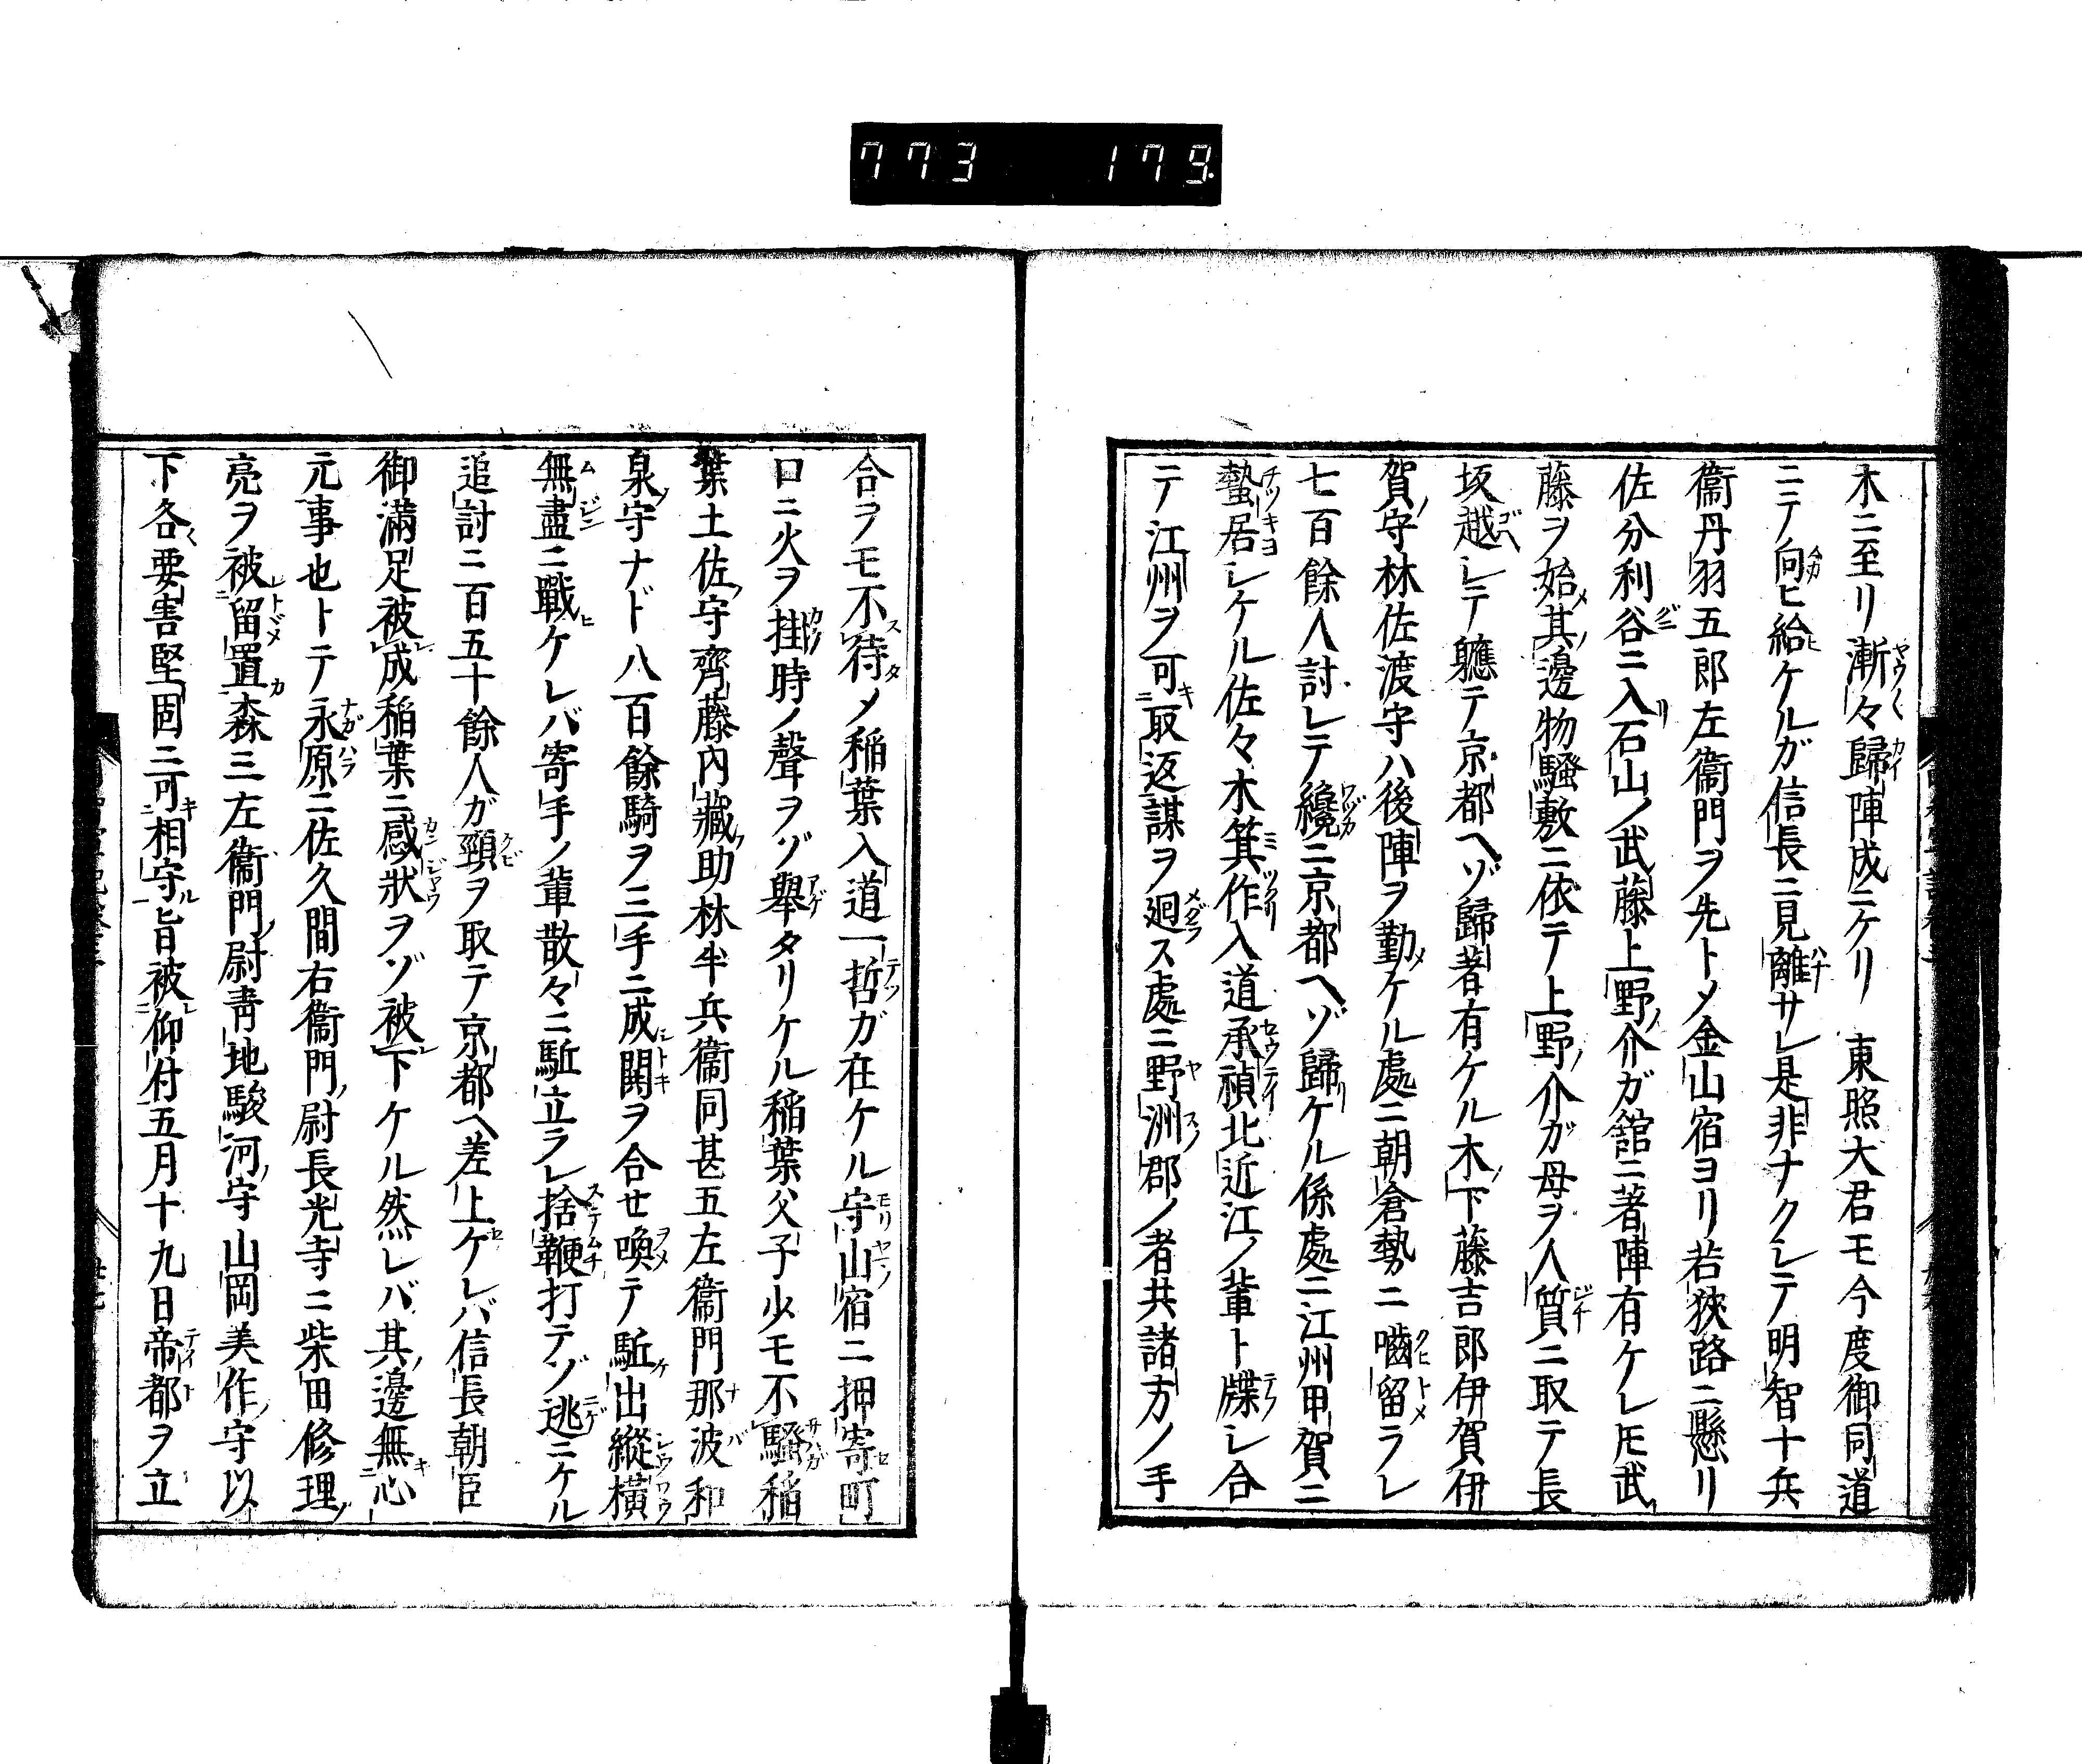 773 179
木ニ至リ漸々歸陣成ニケリ 東照大君モ今度御同道
ニテ向ヒ給ケルガ信長ニ見離サレ是非ナクシテ明智十兵
衞丹羽五郎左衞門ヲ先トメ金山宿ヨリ若狹路ニ懸リ
佐分利谷ニ入石山ノ武藤上野介ガ舘ニ著陣有ケレ𪜈武
藤ヲ始其邊物騷敷ニ依テ上野介ガ母ヲ人質ニ取テ長
坂越レテ軈テ京都ヘゾ歸著有ケル木下藤吉郎伊賀伊
賀守林佐渡守ハ後陣ヲ勤ケル處ニ朝倉勢ニ嚙留ラレ
七百餘人討レテ纔ニ京都ヘゾ歸ケル係處ニ江州甲賀ニ
蟄居レケル佐々木箕作入道承禎北近江ノ輩ト牒レ合
テ江州ヲ可取返謀ヲ廻ス處ニ野洲郡ノ者共諸方ノ手
合ヲモ不待メ稲葉入道一哲ガ在ケル守山宿ニ押寄町
口ニ火ヲ掛時ノ聲ヲゾ舉タリケル稲葉父子少モ不騷稲
葉土佐守齊藤内藏助林半兵衞同甚五左衞門那波和
泉守ナド八百餘騎ヲ三手ニ成鬨ヲ合セ喚テ駈出縱橫
無盡ニ戰ケレバ寄手ノ輩散々ニ駈立ラレ捨鞭打テゾ逃ニケル
追討ニ百五十餘人ガ頸ヲ取テ京都ヘ差上ケレバ信長朝臣
御滿足被成稲葉ニ感狀ヲゾ被下ケル然レバ其邊無心
元事也トテ永原ニ佐久間右衞門尉長光寺ニ柴田修理
亮ヲ被留置森三左衞門尉靑地駿河守山岡美作守以
下各要害堅固ニ可相守旨被仰付五月十九日帝都ヲ立